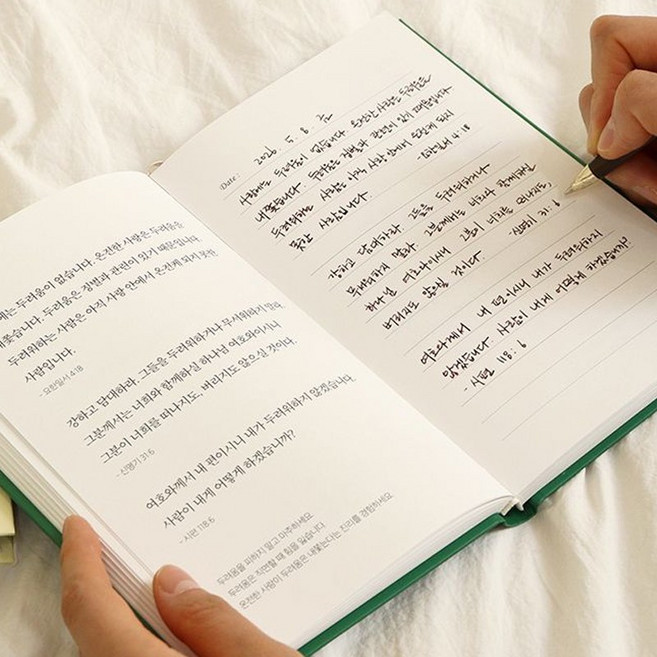 에는 두려움이 없습니다. 온전한 사랑은 두려움을
내쫓습니다. 두려움은 징벌과 관련이 있기 때문입니다.
두려워하는 사람은 아직 사랑 안에서 온전케 되지 못한
사람입니다.
- 요한일서 4:18
강하고 담대하라. 그들을 두려워하거나 무서워하지 말라.
그분께서는 너희와 함께하실 하나님 여호와이시니
그분이 너희를 떠나지도, 버리지도 않으실 것이다.
- 신명기 31:6
여호와께서 내 편이시니 내가 두려워하지 않겠습니다.
사람이 내게 어떻게 하겠습니까?
- 시편 118:6
두려움을 피하지 말고 마주하세요.
두려움은 직면할 때 힘을 잃습니다.
온전한 사랑이 두려움을 내쫓는다는 진리를 경험하세요.
Date:
사랑에는 두려움이 없습니다. 온전한 사랑은 두려움을
내쫓습니다. 두려움은 징벌과 관련이 있기 때문입니다.
두려워하는 사람은 아직 사랑 안에서 온전케 되지
못한 사람입니다. -요한일서 4:18
강하고 담대하라. 그들을 두려워하거나
무서워하지 말라. 그분께서는 너희와 함께하실
하나님 여호와이시니 그분이 너희를 떠나지도,
버리지도 않으실 것이다. -신명기 31:6
여호와께서 내 편이시니 내가 두려워하지
않겠습니다. 사람이 내게 어떻게 하겠습니까?
- 시편 118:6